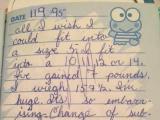 DATE 11-9-95
all I wish I
could fit into
a size 5. I fit
into a 10, 11, 12 or 14.
I've gained 7 pounds.
I weigh 157½. Im
huge. Its so embarr
asing. Change of sub-